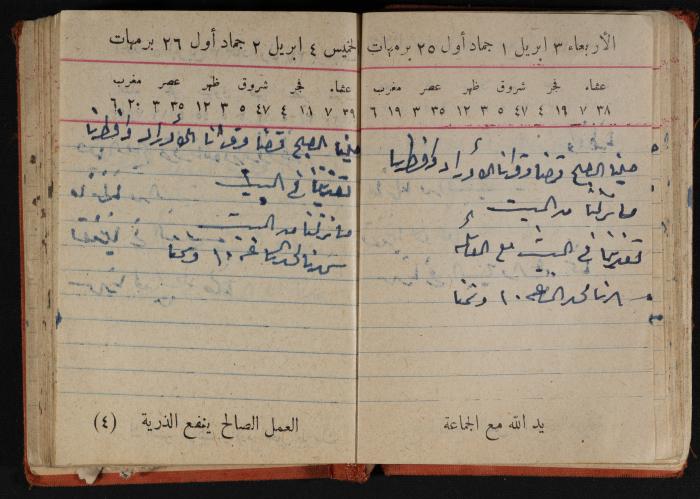 الأربعاء ٣ ابريل ١ جماد أول ٢٥ برمهات
عشاء فجر شروق ظهر عصر مغرب
٣٨ ٧ ١٩ ٤ ٤٧ ٥ ٣ ١٢ ٣٥ ٣ ١٩ ٦
صلينا الصبح قضا وقرأنا الأوراد وافطرنا
ما نزلنا من البيت
تغدينا في البيت مع العائلة
سهرنا لحد الساعة ١٠ ونمنا
يد الله مع الجماعة
الخميس ٤ ابريل ٢ جماد أول ٢٦ برمهات
عشاء فجر شروق ظهر عصر مغرب
٣٩ ٧ ١٨ ٤ ٤٧ ٥ ٣ ١٢ ٣٥ ٣ ٢٠ ٦
صلينا الصبح قضا وقرأنا الأوراد وافطرنا
تغدينا في البيت
ما نزلنا من البيت
سهرنا لحد الساعة ١٠ ونمنا
العمل الصالح ينفع الذرية (٤)